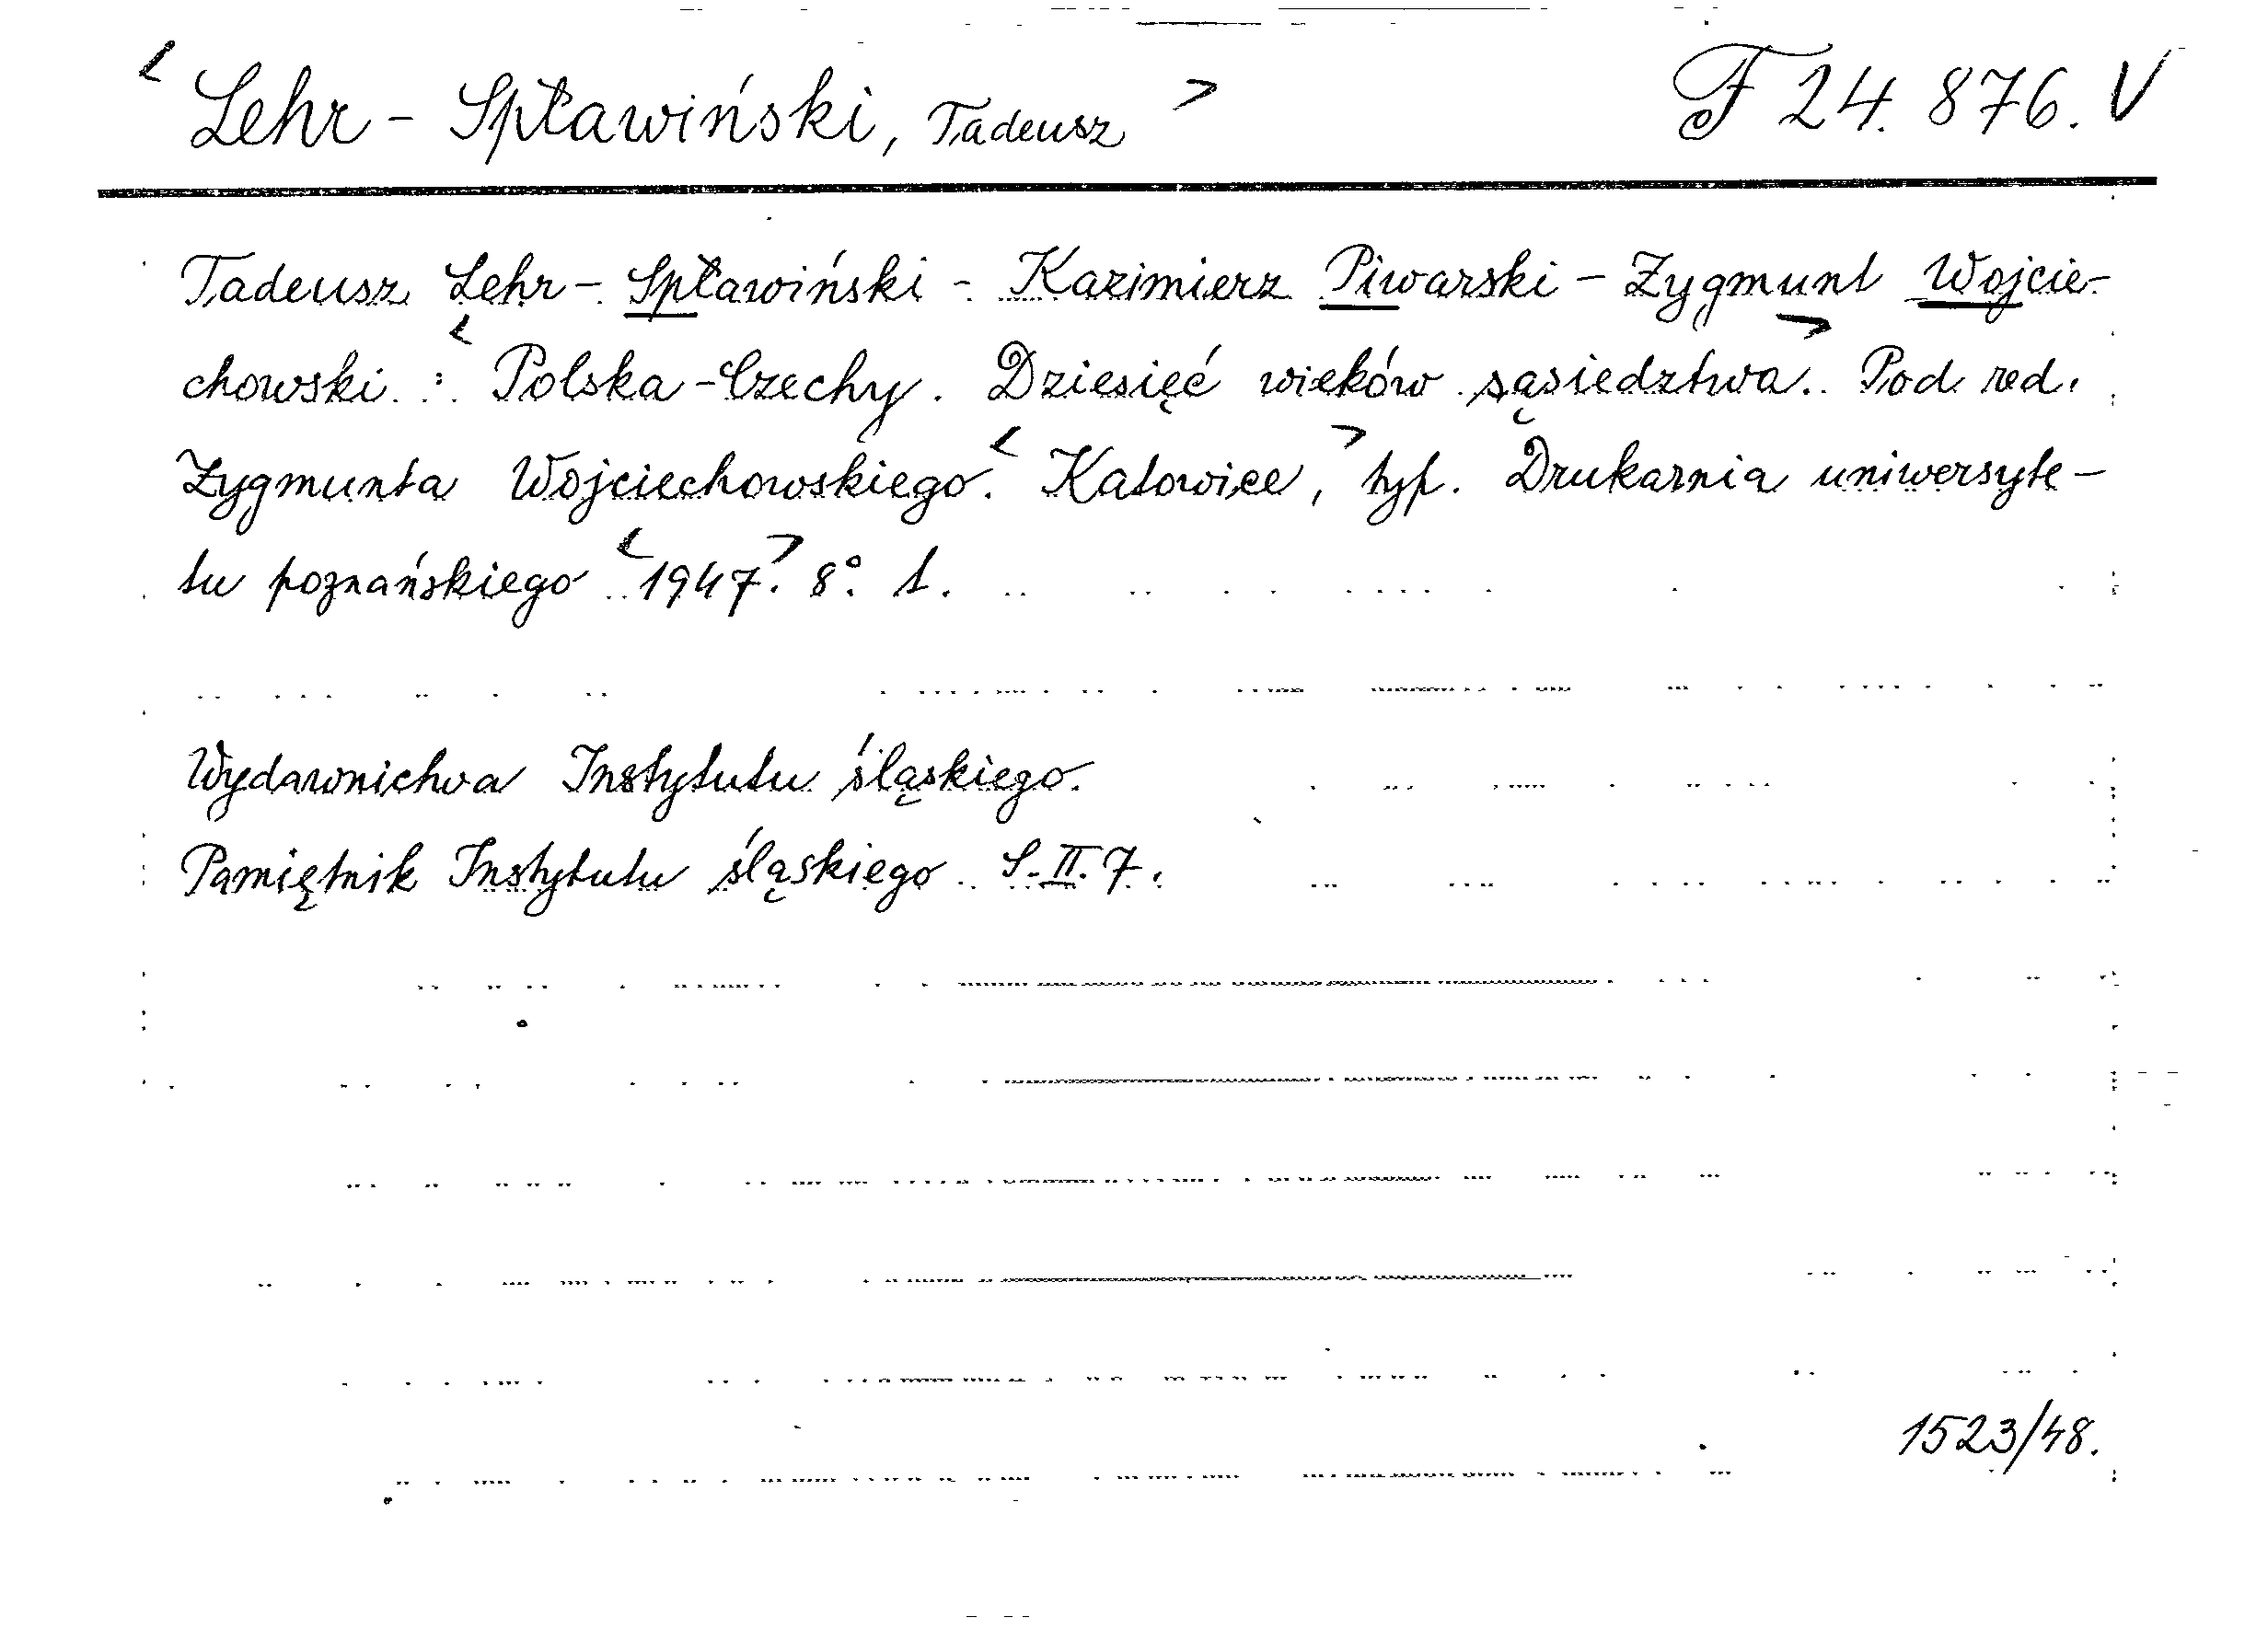 < Lehr-Spławiński, Tadeusz > F 24.876. V
Tadeusz Lehr-Spławiński - Kazimierz Piwarski - Zygmunt Wojcie-
chowski : < Polska-Czechy. Dziesięć wieków sąsiedztwa. > Pod red.
Zygmunta Wojciechowskiego. < Katowice, > typ. Drukarnia uniwersyte-
tu poznańskiego < 1947. > 8° 1.
Wydawnictwa Instytutu śląskiego.
Pamiętnik Instytutu śląskiego S. II. 7.
1523/48.